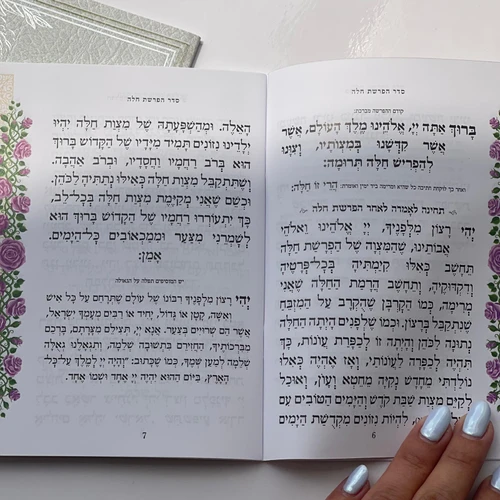 סדר הפרשת חלה
קודם ההפרשה מברכת:
בָּרוּךְ אַתָּה יְיָ, אֱלֹהֵינוּ מֶלֶךְ הָעוֹלָם, אֲשֶׁר
אֲשֶׁר קִדְּשָׁנוּ בְּמִצְוֹתָיו, וְצִוָּנוּ
לְהַפְרִישׁ חַלָּה תְּרוּמָה:
ואחר כך לוקחת חתיכה כל שהיא ומרימה ביד ימין ואומרת: הֲרֵי זוֹ חַלָּה:
תחינה לאמרה לאחר הפרשת חלה
יְהִי רָצוֹן מִלְּפָנֶיךָ, יְיָ אֱלֹהֵינוּ וֵאלֹהֵי
אֲבוֹתֵינוּ, שֶׁהַמִּצְוָה שֶׁל הַפְרָשַׁת חַלָּה
תֵּחָשֵׁב כְּאִלּוּ קִיַּמְתִּיהָ בְּכָל־פְּרָטֶיהָ
וְדִקְדּוּקֶיהָ, וְתֵחָשֵׁב הֲרָמַת הַחַלָּה שֶׁאֲנִי
מְרִימָה, כְּמוֹ הַקָּרְבָּן שֶׁהֻקְרַב עַל הַמִּזְבֵּחַ
שֶׁנִּתְקַבֵּל בְּרָצוֹן. וּכְמוֹ שֶׁלְּפָנִים הָיְתָה הַחַלָּה
נְתוּנָה לַכֹּהֵן וְהָיְתָה זוֹ לְכַפָּרַת עֲוֹנוֹת, כָּךְ
תִּהְיֶה לְכַפָּרָה לַעֲוֹנוֹתַי, וְאָז אֶהְיֶה כְּאִלּוּ
נוֹלַדְתִּי מֵחָדָשׁ נְקִיָּה מֵחֵטְא וְעָוֹן, וְאוּכַל
לְקַיֵּם מִצְוַת שַׁבַּת קֹדֶשׁ וְהַיָּמִים הַטּוֹבִים עִם
לִהְיוֹת נִזּוֹנִים מִקְּדֻשַּׁת הַיָּמִים
6
סדר הפרשת חלה
הָאֵלֶּה. וּמֵהַשְׁפָּעָתָהּ שֶׁל מִצְוַת חַלָּה יִהְיוּ
יְלָדֵינוּ נִזּוֹנִים תָּמִיד מִיָּדָיו שֶׁל הַקָּדוֹשׁ בָּרוּךְ
הוּא בְּרֹב רַחֲמָיו וַחֲסָדָיו, וּבְרֹב אַהֲבָה.
וְשֶׁתִּתְקַבֵּל מִצְוַת חַלָּה כְּאִילּוּ נְתַתִּיהָ לַכֹּהֵן.
וּכְשֵׁם שֶׁאֲנִי מְקַיֶּמֶת מִצְוַת חַלָּה בְּכָל־לֵב,
כָּךְ יִתְעוֹרְרוּ רַחֲמָיו שֶׁל הַקָּדוֹשׁ בָּרוּךְ הוּא
לְשָׁמְרֵנִי מִצַּעַר וּמִמַּכְאוֹבִים כָּל־הַיָּמִים.
אָמֵן:
יש המוסיפים תפלה על הגאולה:
יְהִי רָצוֹן מִלְּפָנֶיךָ רִבּוֹנוֹ שֶׁל עוֹלָם שֶׁתְּרַחֵם עַל כָּל אִישׁ
וְאִשָּׁה, קָטָן אוֹ גָדוֹל, יָחִיד אוֹ רַבִּים מֵעַמְּךָ יִשְׂרָאֵל,
אֲשֶׁר הֵם שְׁרוּיִים בְּצַעַר. אָנָּא יְיָ, תַּצִּילֵם מִצָּרָתָם, בָּרְכֵם
מִבִּרְכוֹתֶיךָ, הַחֲזִירֵם בִּתְשׁוּבָה שְׁלֵמָה, וְתִגְאָלֵנוּ גְאֻלָּה
שְׁלֵמָה לְמַעַן שְׁמֶךָ, כְּמוֹ שֶׁכָּתוּב: "וְהָיָה יְיָ לְמֶלֶךְ עַל־כָּל־
הָאָרֶץ, בַּיּוֹם הַהוּא יִהְיֶה יְיָ אֶחָד וּשְׁמוֹ אֶחָד.
7